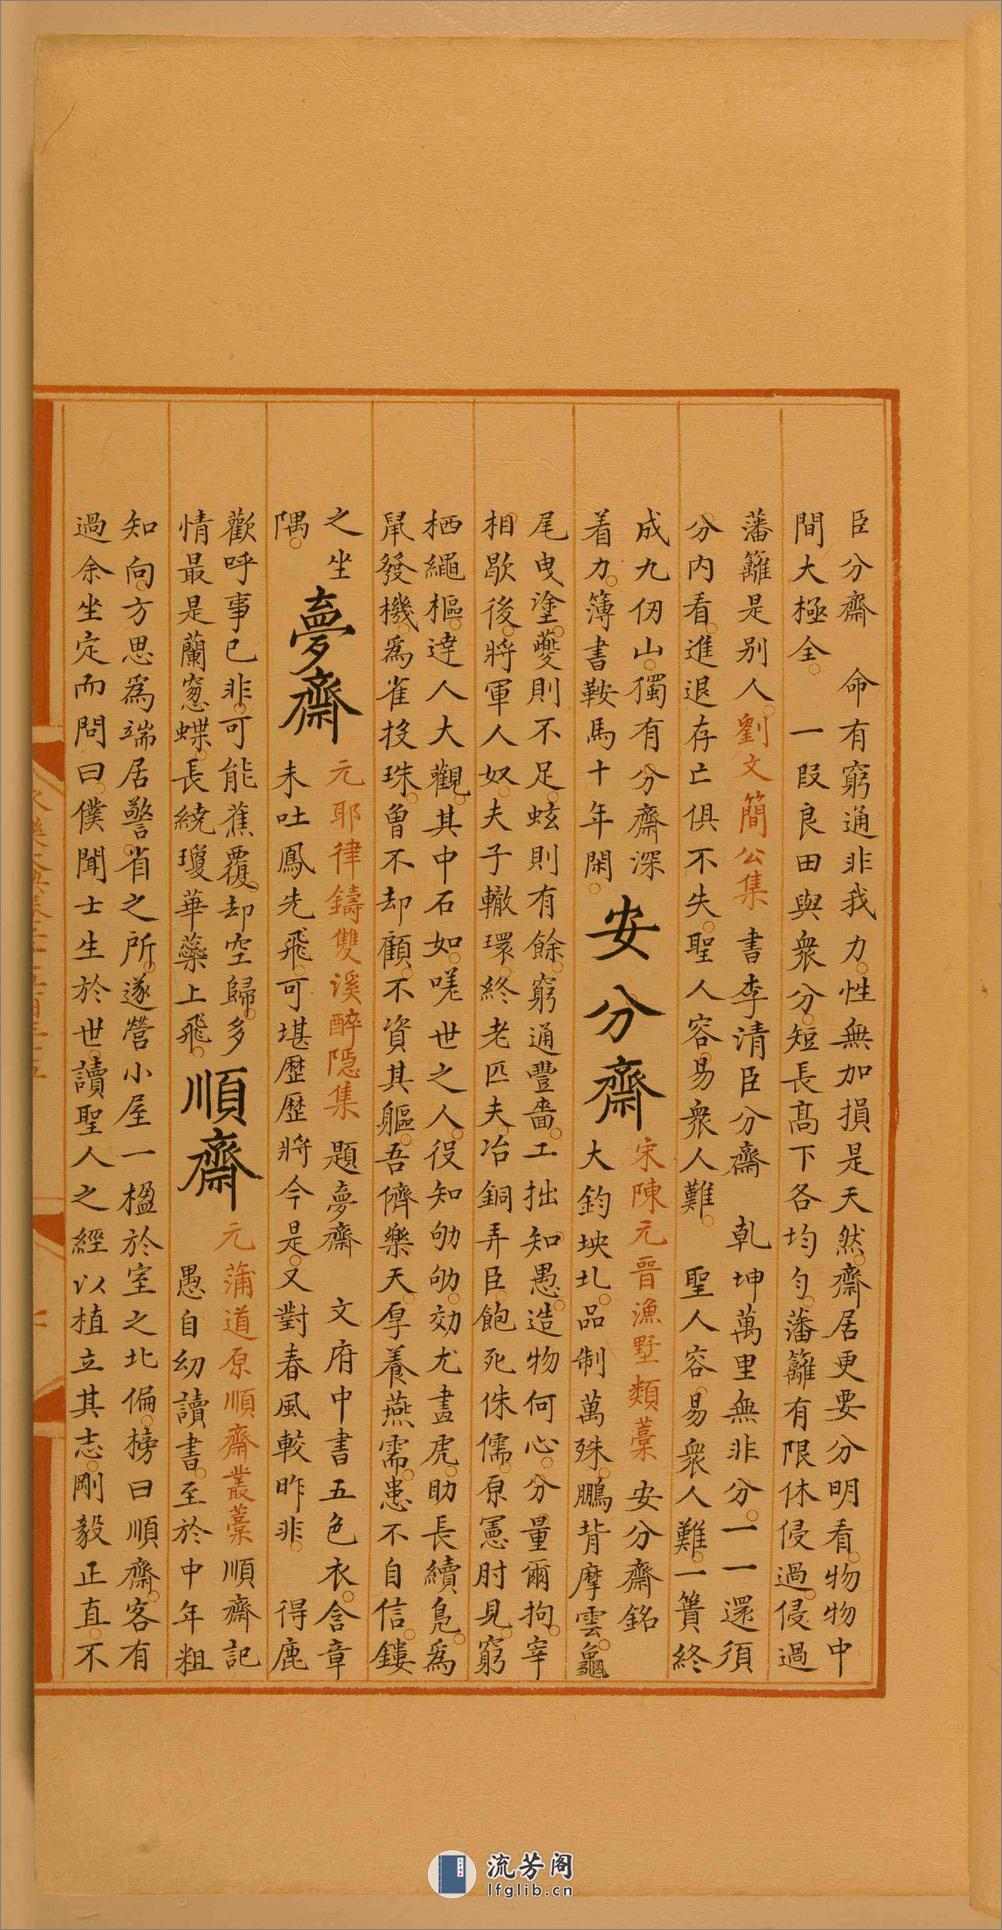 臣分齋　命有窮通非我力性無加損是天然齋居更要分明看物物中
間大極全　一段良田與衆分短長高下各均勻藩籬有限休侵過侵過
藩籬是别人劉文簡公集　書李清臣分齋　乾坤萬里無非分一一還須
分内看進退存亡俱不失聖人容易衆人難　聖人容易衆人難一簣終
成九仞山獨有分齋深
着力簿書鞍馬十年閑
安分齋
宋陳元晉漁墅類藁　安分齋銘
大鈞坱圠品制萬殊鵬背摩雲龜
尾曳塗夔則不足蚿則有餘窮通豐嗇工拙知愚造物何心分量爾拘宰
相歇後將軍人奴夫子轍環終老匹夫冶銅弄臣飽死侏儒原憲肘見窮
栖繩樞達人大觀其中石如嗟世之人役知劬劬効尤畫虎助長續鳧爲
鼠發機爲雀投珠曾不却顧不資其軀吾儕樂天厚養燕需患不自信鏤
之坐
隅
夢齋
元耶律鑄雙溪醉隱集　題夢齋　文府中書五色衣含章
未吐鳳先飛可堪歷歷將今是又對春風較昨非　得鹿
歡呼事已非可能蕉覆却空歸多
情最是蘭窻蝶長繞瓊華藥上飛
順齋
元蒲道原順齋叢藁順齋記
愚自幼讀書至於中年粗
知向方思爲端居警省之所遂營小屋一楹於室之北偏榜曰順齋客有
過余坐定而問曰僕聞士生於世讀聖人之經以植立其志剛毅正直不
流芳阁
lfglib.cn